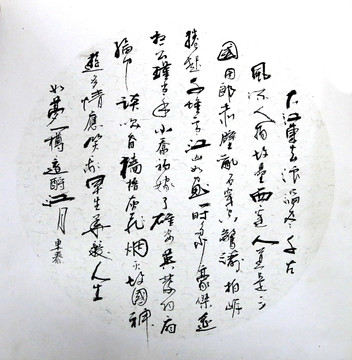 大江東去浪淘盡千古
風流人物故壘西邊人道是三
國周郎赤壁亂石穿空驚濤拍岸
捲起千堆雪江山如畫一時多少豪傑遙
想公瑾當年小喬初嫁了雄姿英發羽扇
綸巾談笑間檣櫓灰飛烟滅故國神
遊多情應笑我早生華髮人生
如夢一樽還酹江月